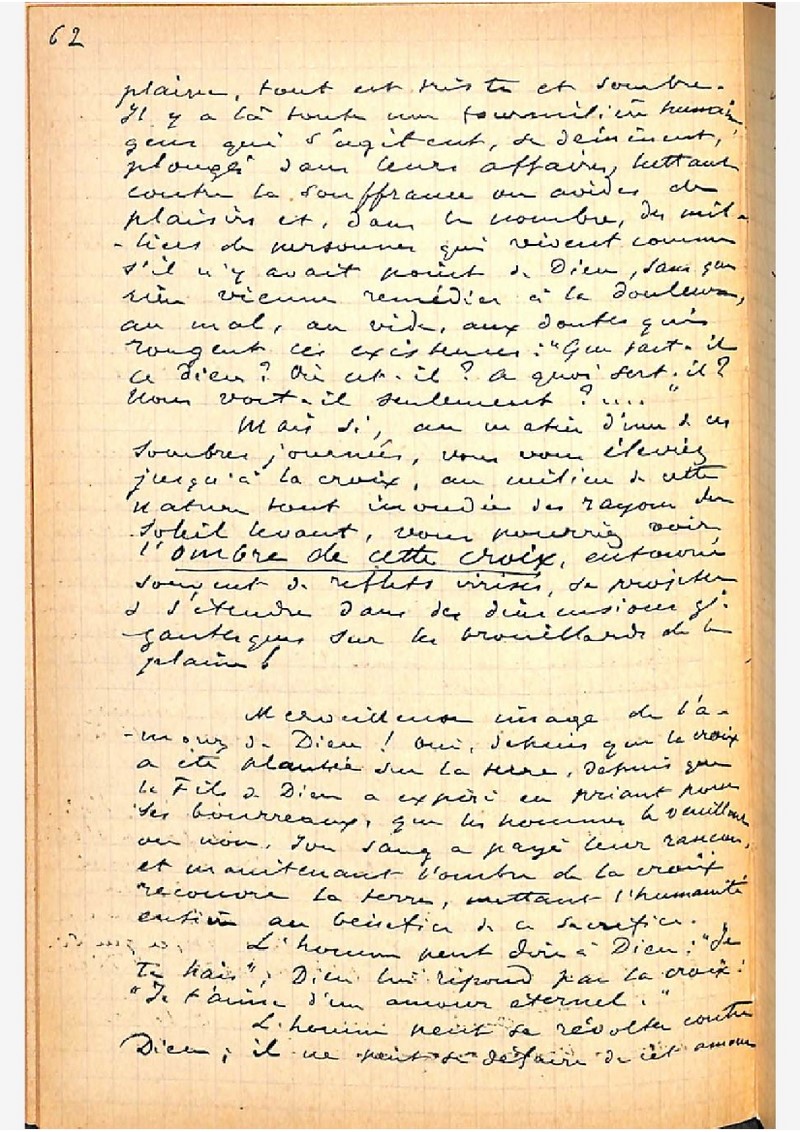 62
plaine, tout est triste et sombre.
Il y a là toute une fourmilière humaine,
gens qui s'agitent, se démènent,
plongés dans leurs affaires, luttant
contre la souffrance ou avides de
plaisirs et, dans le nombre, des mil-
-liers de personnes qui vivent comme
s'il n'y avait point de Dieu, sans que
rien vienne remédier à la douleur,
au mal, au vide, aux doutes qui
rongent ces existences : "Que fait-il
ce Dieu ? Où est-il ? A quoi sert-il ?
Nous voit-il seulement ? .... "
Mais si, au matin d'une de ces
sombres journées, vous vous éleviez
jusqu'à la croix, au milieu de cette
nature tout inondée des rayons du
soleil levant, vous pourriez voir,
l'ombre de cette croix, entourée
souvent de reflets irisés, se projeter
& s'étendre dans des dimensions gi-
-gantesques sur les brouillards de la
plaine !
Merveilleuse image de l'a-
-mour de Dieu ! Oui, depuis que la croix
a été plantée sur la terre, depuis que
le Fils de Dieu a expiré en priant pour
ses bourreaux, que les hommes le veuillent
ou non, son sang a payé leur rançon,
et maintenant l'ombre de la croix
recouvre la terre, mettant l'humanité
entière au bénéfice de ce sacrifice.
L'homme peut dire à Dieu : "Je
te hais" ; Dieu lui répond par la croix :
"Je t'aime d'un amour éternel ! "
L'homme peut se révolter contre
Dieu ; il ne peut se défaire de cet amour